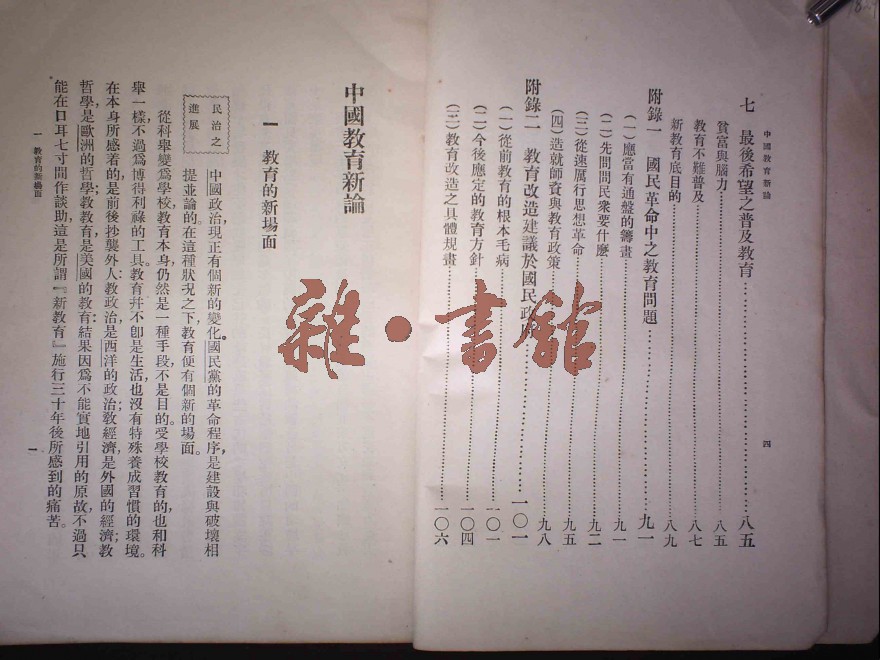 中國教育新論
四
七 最後希望之普及教育………八五
貧富與腦力………八五
教育不難普及………八七
新教育底目的………八九
附錄一 國民革命中之教育問題………九一
(一)應當有通盤的籌畫………九一
(二)先問問民衆要什麼………九二
(三)從速厲行思想革命………九五
(四)造就師資與教育政策………九八
附錄二 教育改造建議於國民政府………一〇一
(一)從前教育的根本毛病………一〇一
(二)今後應定的教育方針………一〇四
(三)教育改造之具體規畫………一〇六
中國教育新論
一 教育的新場面
民治之
進展
中國政治,現正有個新的變化。國民黨的革命程序,是建設與破壞相
提並論的。在這種狀況之下,教育便有個新的場面。
從科舉變爲學校,教育本身仍然是一種手段,不是目的。受學校教育的,也和科
舉一樣,不過爲博得利祿的工具。教育幷不卽是生活,也沒有特殊養成習慣的環境。
在本身所感着的,是前後抄襲外人:教政治,是西洋的政治;教經濟,是外國的經濟;教
哲學,是歐洲的哲學;教教育,是美國的教育:結果因爲不能實地引用的原故,不過只
能在口耳七寸間作談助,這是所謂『新教育』施行三十年後所感到的痛苦。
一 教育的新場面
一
雜·書館